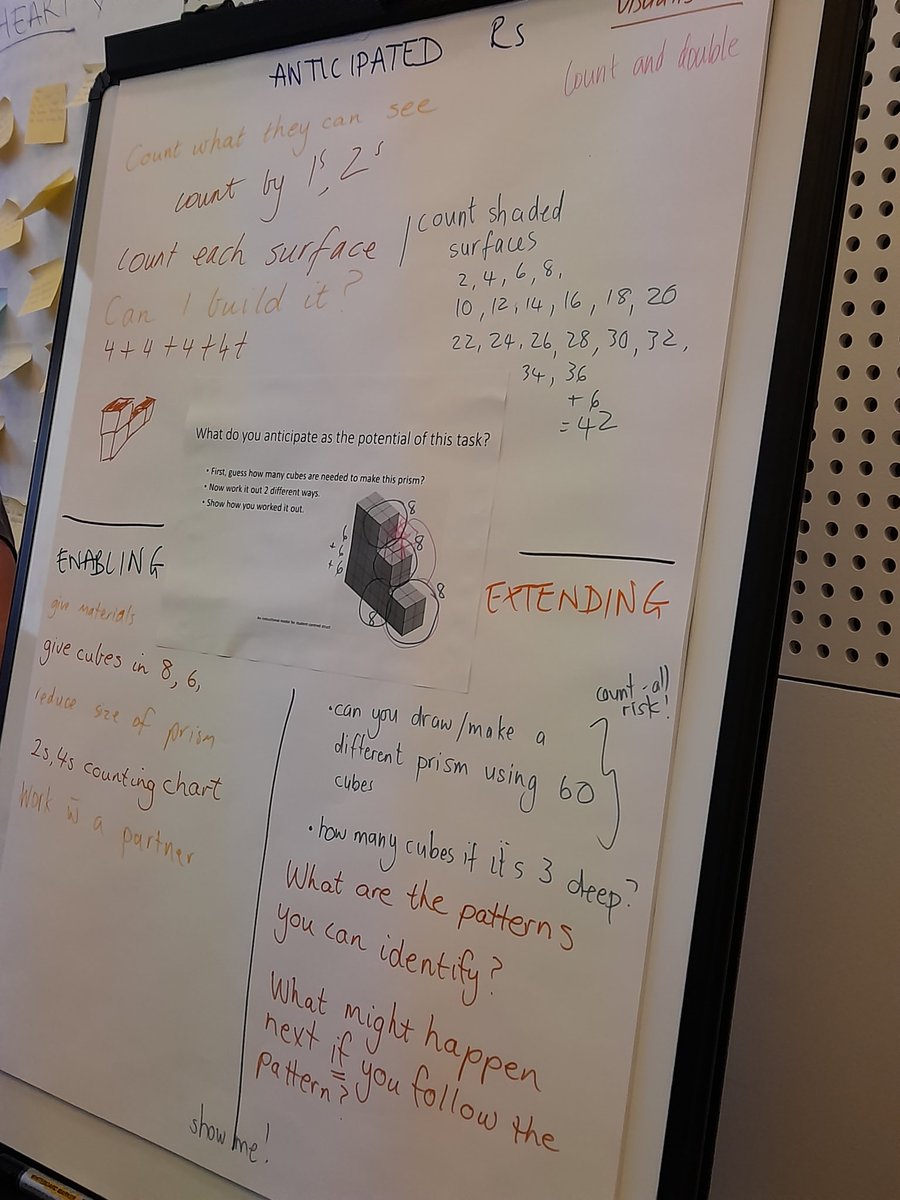 HEART
ANTICIPATED Rs
Count and double
Count what they can see
count by 1s, 2s
count each surface
count shaded
surfaces
2, 4, 6, 8,
10, 12, 14, 16, 18, 20
22, 24, 26, 28, 30, 32,
34, 36
+ 6
= 42
Can I build it?
4+4+4+4+
What do you anticipate as the potential of this task?
• First, guess how many cubes are needed to make this prism?
• Now work it out 2 different ways.
• Show how you worked it out.
8
8
8
8
6
+6
+6
An instructional model for student centred struct
ENABLING
give materials
give cubes in 8, 6,
reduce size of prism
2s, 4s counting chart
Work w a partner
EXTENDING
count-all
risk!
• can you draw/make a
different prism using 60
cubes
• how many cubes if it's 3 deep?
What are the patterns
you can identify?
What might happen
next if you follow the
pattern?
show me!
WHITEBOARD MARKER